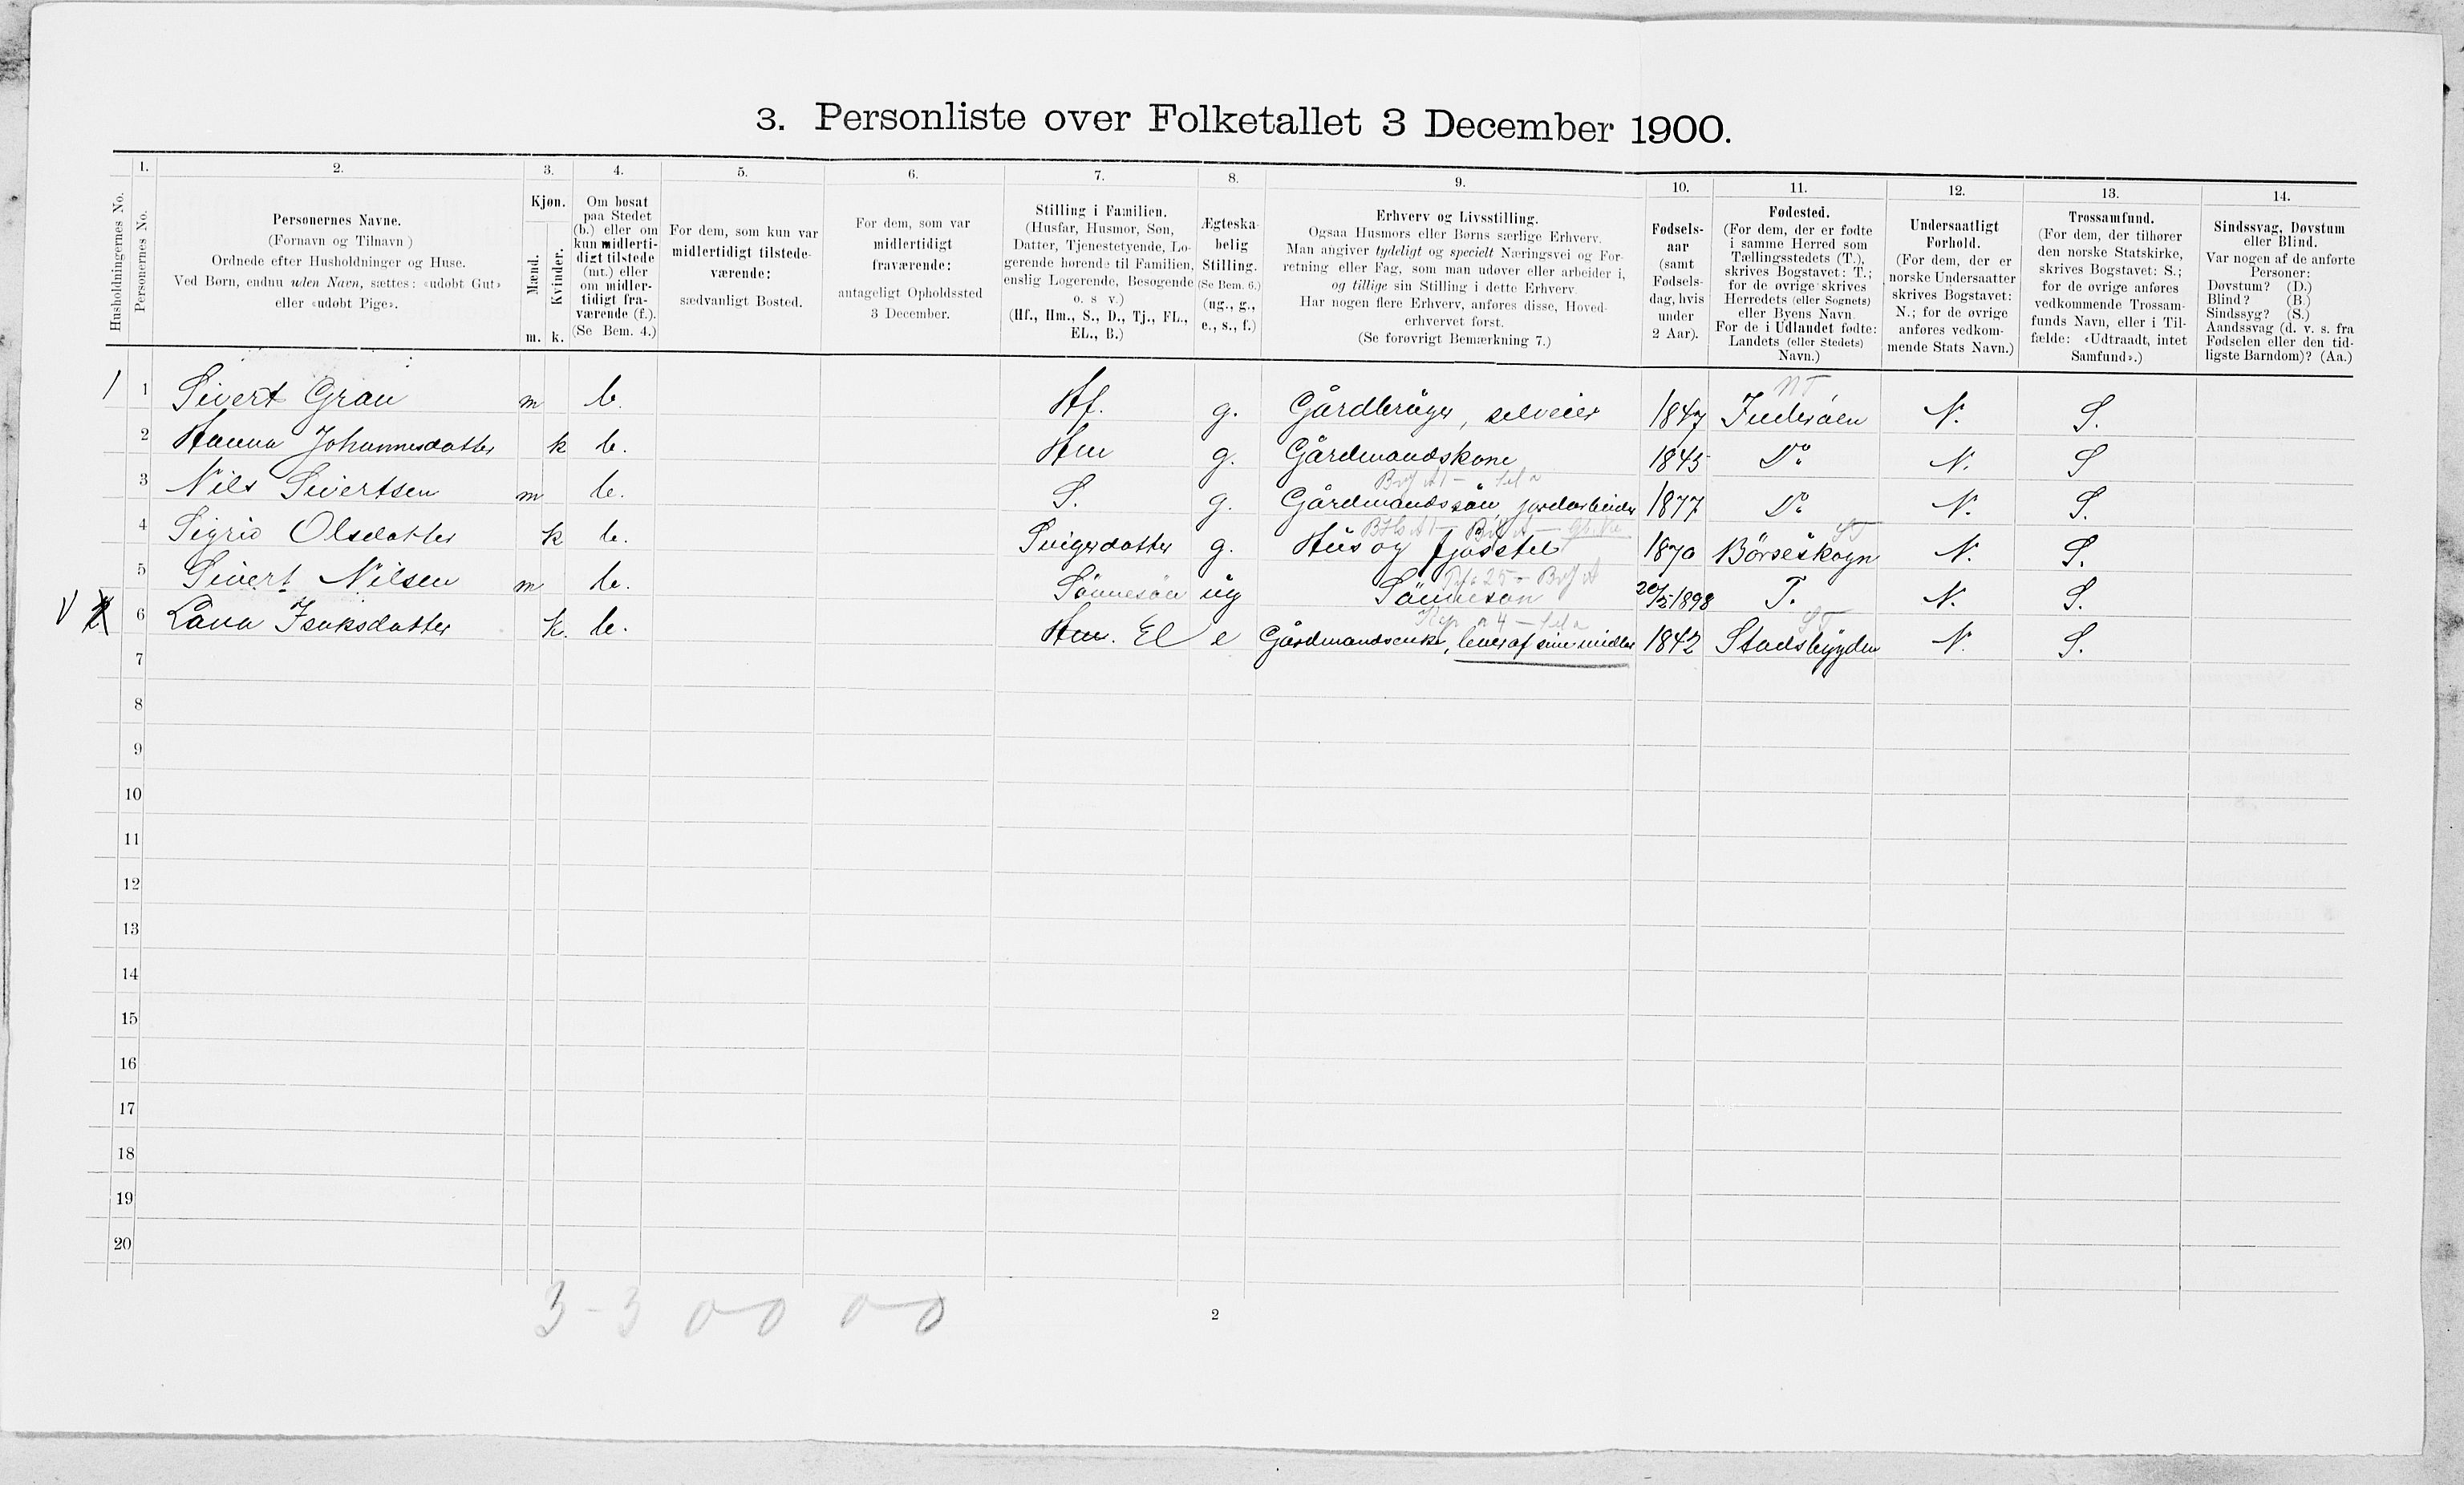 3. Personliste over Folketallet 3 December 1900.
1. 2. 3. 4. 5. 6. 7. 8. 9. 10. 11. 12. 13. 14.
Husholdningernes No.
Personernes No.
Personernes Navne.
(Fornavn og Tilnavn)
Ordnede efter Husholdninger og Huse.
Ved Børn, endnu uden Navn, sættes: «udøbt Gut»
eller «udøbt Pige».
Kjøn.
Mænd.
Kvinder.
m. k.
Om bosat
paa Stedet
(b.) eller om
kun midlerti-
digt tilstede
(mt.) eller
om midler-
tidigt fra-
værende (f.).
(Se Bem. 4.)
For dem, som kun var
midlertidigt tilstede-
værende:
sædvanligt Bosted.
For dem, som var
midlertidigt
fraværende:
antageligt Opholdssted
3 December.
Stilling i Familien.
(Husfar, Husmor, Søn,
Datter, Tjenestetyende, Lo-
gerende hørende til Familien,
enslig Logerende, Besøgende
o. s v.)
(Hf., Hm., S., D., Tj., FL.,
EL., B.)
Ægteska-
belig
Stilling.
(Se Bem. 6.)
(ug., g.,
e., s., f.)
Erhverv og Livsstilling.
Ogsaa Husmors eller Børns særlige Erhverv.
Man angiver tydeligt og specielt Næringsvei og For-
retning eller Fag, som man udøver eller arbeider i,
og tillige sin Stilling i dette Erhverv.
Har nogen flere Erhverv, anføres disse, Hoved-
erhvervet først.
(Se forøvrigt Bemærkning 7.)
Fødsels-
aar
(samt
Fødsels-
dag, hvis
under
2 Aar).
Fødested.
(For dem, der er fødte
i samme Herred som
Tællingsstedets (T.),
skrives Bogstavet: T.;
for de øvrige skrives
Herredets (eller Sognets)
eller Byens Navn.
For de i Udlandet fødte:
Landets (eller Stedets)
Navn.)
Undersaatligt
Forhold.
(For dem, der er
norske Undersaatter
skrives Bogstavet:
N.; for de øvrige
anføres vedkom-
mende Stats Navn.)
Trossamfund.
(For dem, der tilhører
den norske Statskirke,
skrives Bogstavet: S.;
for de øvrige anføres
vedkommende Trossam-
funds Navn, eller i Til-
fælde: «Udtraadt, intet
Samfund».)
Sindssvag, Døvstum
eller Blind.
Var nogen af de anførte
Personer:
Døvstum? (D.)
Blind? (B.)
Sindssyg? (S.)
Aandssvag (d. v. s. fra
Fødselen eller den tid-
ligste Barndom)? (Aa.)
NT
1 1 Sivert Grau m b. Hf. g. Gårdbrüger, selveier 1847 Inderöen N. S.
2 Hanna Johannesdatter k b. Hm g. Gårdmandskone 1845 Do N. S
3 Nils Sivertsen m b. S. g. Gårdmandssön, jordarbeider 1877 Do N. S.
ST
4 Sigrid Olsdatter k b. Svigerdatter g. Hüs og fjösstel 1870 Börseskogn N. S.
5 Sivert Nilsen m b. Sönnesön üg Sönnesön 20/5 1898 T. N. S.
ST
V 2 6 Lava Isaksdatter k. b. Hm. El e Gårdmandsenke, lever af sine midler 1842 Stadsbygden N. S.
7
8
9
10
11
12
13
14
15
16
17
18
19
20
3-3 0-0 0-0
2